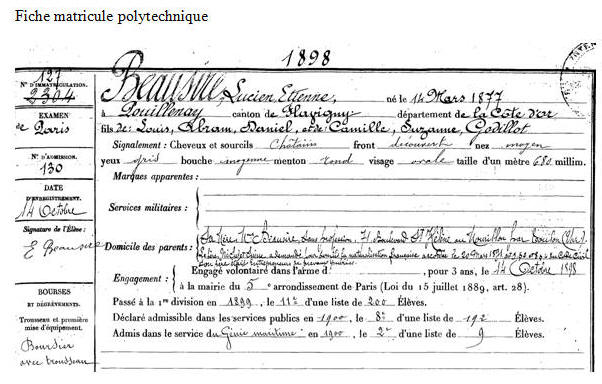 Fiche matricule polytechnique
1898
N° D'IMMATRICULATION.
127
2304
EXAMEN
de Paris
N° D'ADMISSION.
130
DATE
D'ENREGISTREMENT.
14 Octobre
Signature de l'Élève :
E Beausire
BOURSES
ET DÉGRÈVEMENTS.
Trousseau et première
mise d'équipement.
Boursier
avec trousseau
Beausire, Lucien Etienne, né le 14 Mars 1877
à Pouillenay canton de Flavigny département de la Côte d'or
fils de Louis, Abram, Daniel, et de Camille, Suzanne, Godillot
Signalement : Cheveux et sourcils Châtains front découvert nez moyen
yeux gris bouche moyenne menton rond visage ovale taille d'un mètre 680 millim.
Marques apparentes :
Services militaires :
Domicile des parents : Sa Mère, Mme Beausire, sans profession, 71 Boulevard Ste Hélène au Mourillon par Toulon (Var)
Engagement : Engagé volontaire dans l'arme d , pour 3 ans, le 14 Octobre 1898
à la mairie du 5e arrondissement de Paris (Loi du 15 juillet 1889, art. 28).
Passé à la 1re division en 1899, le 11e d'une liste de 200 Élèves.
Déclaré admissible dans les services publics en 1900, le 8e d'une liste de 192 Élèves.
Admis dans le service du Génie maritime en 1900, le 2e d'une liste de 9 Élèves.